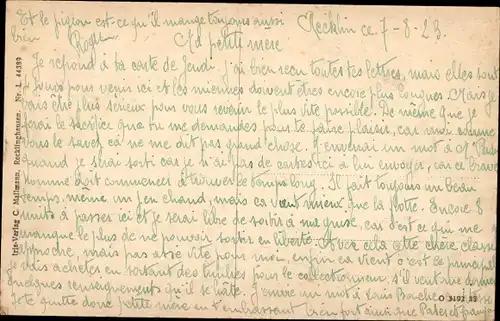 Et le pigeon est-ce qu'il mange toujours aussi
bien Recklin ce 7-8-23.
Ma petite mère
Je répond à ta carte de Jeudi. J'ai bien reçu toutes tes lettres, mais elles sont
jours pour venir ici et les miennes doivent être encore plus longues. Mais je
vais être plus sérieux pour vous revenir le plus vite possible. De même que je
ferai le sacrifice que tu me demandes pour te faire plaisir, car comme
vous le savez ça ne me dit pas grand chose. J'enverrai un mot à Mr
quand je serai sorti car je n'ai pas de cartes ici à lui envoyer, car ce brave
homme doit commencer à trouver le temps long. Il fait toujours un beau
temps, même un peu chaud, mais ça vaut mieux que la flotte. Encore 8
nuits à passer ici et je serai libre de sortir à ma guise, car c'est ce qui me
manque le plus de ne pouvoir sortir en liberté. Avec cela cette chère classe
approche, mais pas assez vite pour moi, enfin ça vient c'est le principal
Je vais acheter en sortant des timbres pour le collectionneur s'il veut me donner
quelques renseignements qu'il se hâte. J'envoie un mot à Louis
Je te quitte donc petite mère en t'embrassant bien fort ainsi que
Iris-Verlag C. Mallmann, Recklinghausen. Nr. L. 44389
O 3492 23